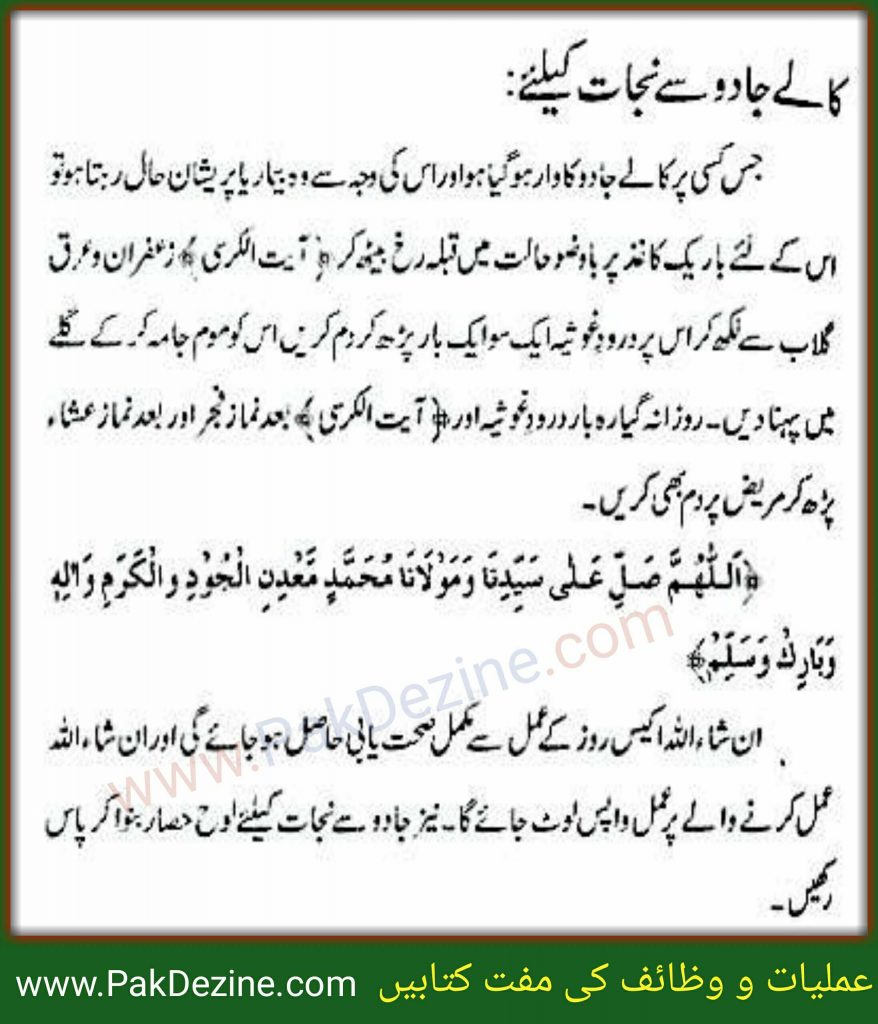 کالے جادو سے نجات کیلئے:
جس کسی پر کالے جادو کا وار ہو گیا ہو اور اس کی وجہ سے وہ بیمار یا پریشان حال رہتا ہو تو
اس کے لئے باریک کاغذ پر باوضو حالت میں قبلہ رخ بیٹھ کر ﴿آیت الکرسی﴾ زعفران و عرق
گلاب سے لکھ کر اس پر درودِ غوثیہ ایک سو ایک بار پڑھ کر دم کریں اس کو موم جامہ کر کے گلے
میں پہنا دیں۔ روزانہ گیارہ بار درودِ غوثیہ اور ﴿آیت الکرسی﴾ بعد نماز فجر اور بعد نماز عشاء
پڑھ کر مریض پر دم بھی کریں۔
﴿اَللّٰهُمَّ صَلِّ عَلٰى سَيِّدِنَا وَمَوْلَانَا مُحَمَّدٍ مَّعْدِنِ الْجُوْدِ وَالْكَرَمِ وَاٰلِهٖ
وَبَارِكْ وَسَلِّمْ﴾
ان شاء اللہ اکیس روز کے عمل سے مکمل صحت یابی حاصل ہو جائے گی اور ان شاء اللہ
عمل کرنے والے پر عمل واپس لوٹ جائے گا۔ نیز جادو سے نجات کیلئے لوح حصار بنوا کر پاس
رکھیں۔
www.PakDezine.com
عملیات و وظائف کی مفت کتابیں www.PakDezine.com